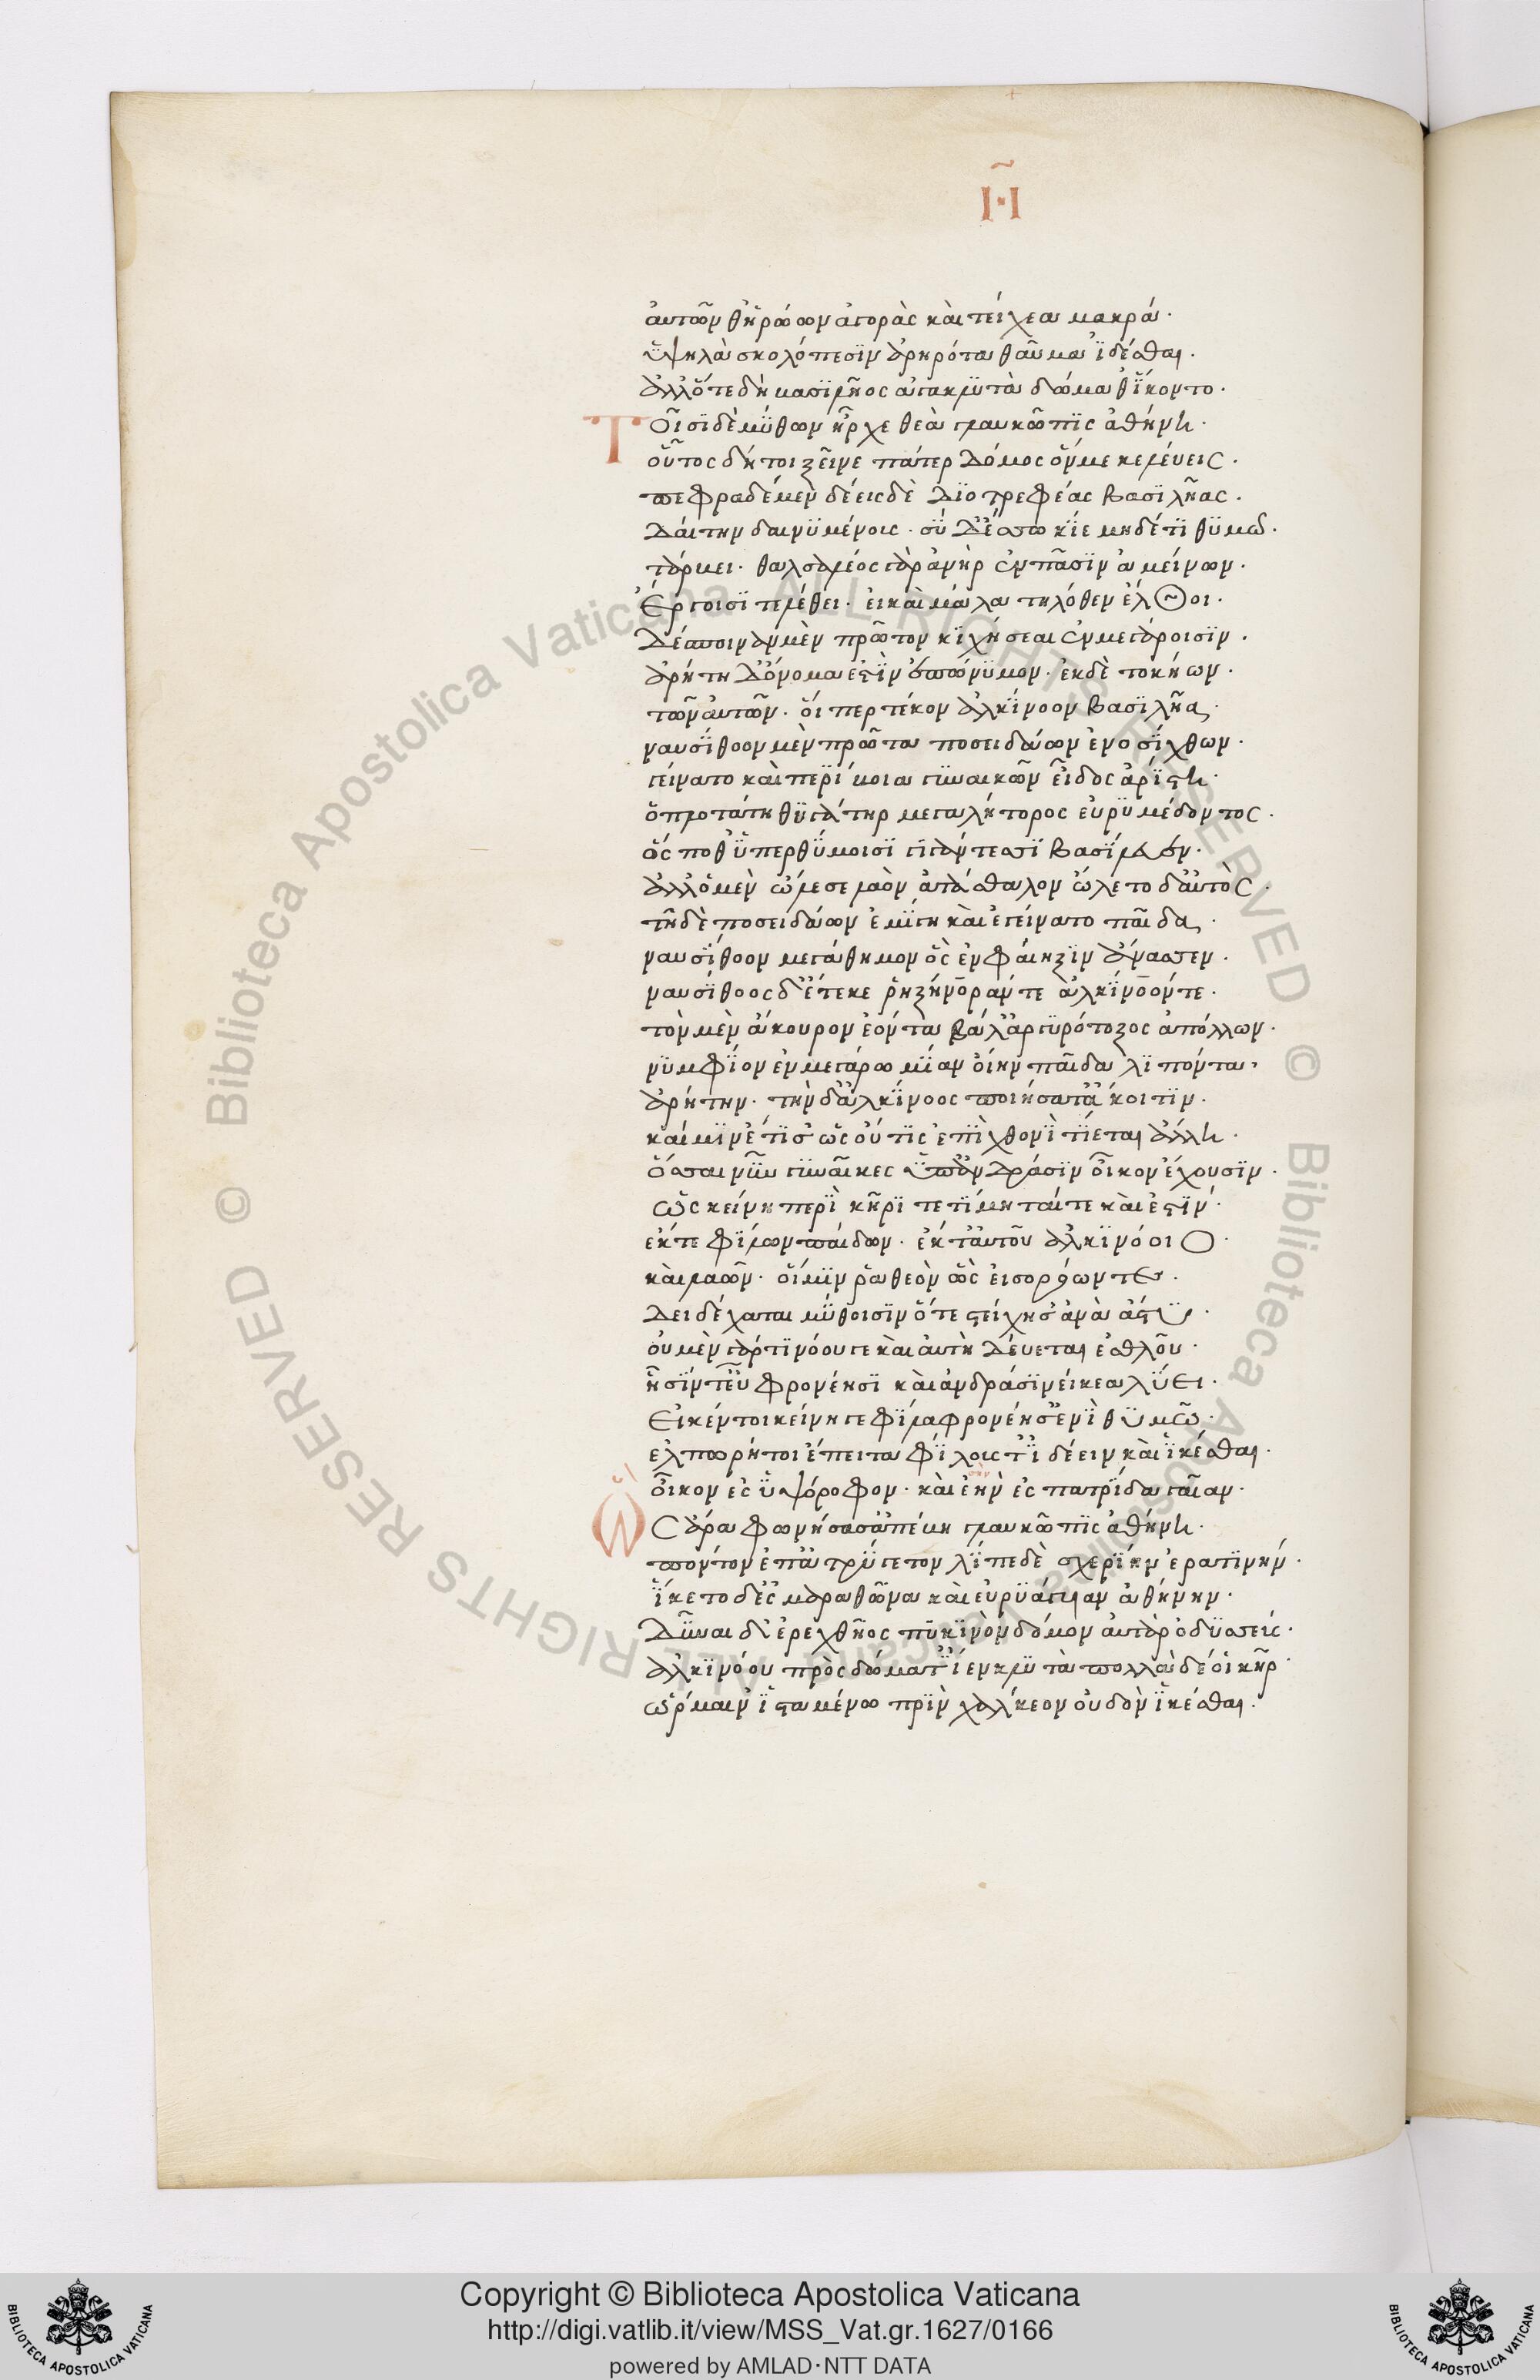 Η
αὐτῶν θ' ἡρώων ἀγορὰς καὶ τείχεα μακρά·
ὑψηλὰ σκολόπεσϊν ἀρηρότα θαῦμα ἰδέσθαι·
ἀλλ' ὅτε δὴ βασιλῆος ἀγακλυτὰ δώμαθ' ἵκοντο·
Τοῖσϊ δὲ μύθων ἦρχε θεὰ γλαυκῶπις ἀθήνη·
οὗτος δή τοι ξεῖνε πάτερ δόμος ὅν με κελεύεις·
πεφραδέμεν δέεις δὲ διοτρεφέας βασιλῆας·
δαίτην δαινυμένοις· σὺ δ' ἔσω κίε μηδέ τι θυμῶ·
τάρβει· θαλσαλέος γὰρ ἀνὴρ ἐν πᾶσϊν ἀμείνων·
ἔργοισϊ τελέθει· εἰ καὶ μάλα τηλόθεν ἔλθοι·
δέσποιναν μὲν πρῶτον κιχήσεαι ἐν μεγάροισϊν·
ἀρήτη δ' ὄνομα ἐστὶν ἐπώνυμον· ἐκ δὲ τοκήων·
τῶν αὐτῶν· οἵ περ τέκον ἀλκίνοον βασιλῆα·
ναυσίθοον μὲν πρῶτα ποσειδάων ἐνοσίχθων·
γείνατο καὶ περίβοια γυναικῶν εἶδος ἀρίστη·
ὁπλοτάτη θυγάτηρ μεγαλήτορος εὐρυμέδοντος·
ὅς ποθ' ὑπερθύμοισϊ γιγάντεσσϊ βασίλευεν·
ἀλλ' ὁ μὲν ὤλεσε λαὸν ἀτάσθαλον ὤλετο δ' αὐτὸς·
τῇ δὲ ποσειδάων ἐμίγη καὶ ἐγείνατο παῖδα·
ναυσίθοον μεγάθημον ὃς ἐν φαίηξϊν ἄνασσεν·
ναυσίθοος δ' ἔτεκε ῥηξήνορά ν τε ἀλκίνοόν τε·
τὸν μὲν ἄκουρον ἐόντα βάλ' ἀργυρότοξος ἀπόλλων·
νυμφίον ἐν μεγάρω μίαν οἴην παῖδα λιπόντα·
ἀρήτην· τὴν δ' ἀλκίνοος ποιήσατ' ἄκοιτϊν·
καί μιν ἔτισ' ὡς οὔ τις ἐπὶ χθονὶ τίεται ἄλλη·
ὅσσαι νῦν γυναῖκες ὑπ' ἀνδράσϊν οἶκον ἔχουσϊν·
ὣς κείνη περὶ κῆρϊ τετίμηταί τε καὶ ἐστίν·
ἐκ τε φίλων παίδων· ἐκ τ' αὐτοῦ ἀλκινόοιο·
καὶ λαῶν· οἵ μιν ῥα θεὸν ὣς εἰσορόωντες·
δειδέχαται μύθοισϊν ὅτε στείχησ' ἀνὰ ἄστυ·
οὐ μὲν γάρ τι νόου γε καὶ αὐτὴ δεύεται ἐσθλοῦ·
ᾗσϊν τ' εὖ φρονέησϊ καὶ ἀνδράσϊ νείκεα λύει·
εἰ κέν τοι κείνη γε φίλα φρονέησ' ἐνὶ θυμῶ·
ἐλπωρή τοι ἔπειτα φίλους τ' ἰδέειν καὶ ἱκέσθαι·
οἶκον ἐς ὑψόροφον· καὶ ἐὴν ἐς πατρίδα γαῖαν·
Ὣς ἄρα φωνήσασ' ἀπέβη γλαυκῶπις ἀθήνη·
πόντον ἐπ' ἀτρύγετον λίπε δὲ σχερίην ἐρατϊνήν·
ἵκετο δ' ἐς μαραθῶνα καὶ εὐρυάγυιαν ἀθήνην·
δῦναι δ' ἐρεχθῆος πυκινὸν δόμον αὐτὰρ ὀδυσσεύς·
ἀλκινόου πρὸς δώματ' ἴεν κλυτὰ πολλὰ δέ οἱ κῆρ·
ὥρμαιν' ἱσταμένω πρὶν χάλκεον οὐδὸν ἱκέσθαι·
Copyright © Biblioteca Apostolica Vaticana
http://digi.vatlib.it/view/MSS_Vat.gr.1627/0166
powered by AMLAD·NTT DATA